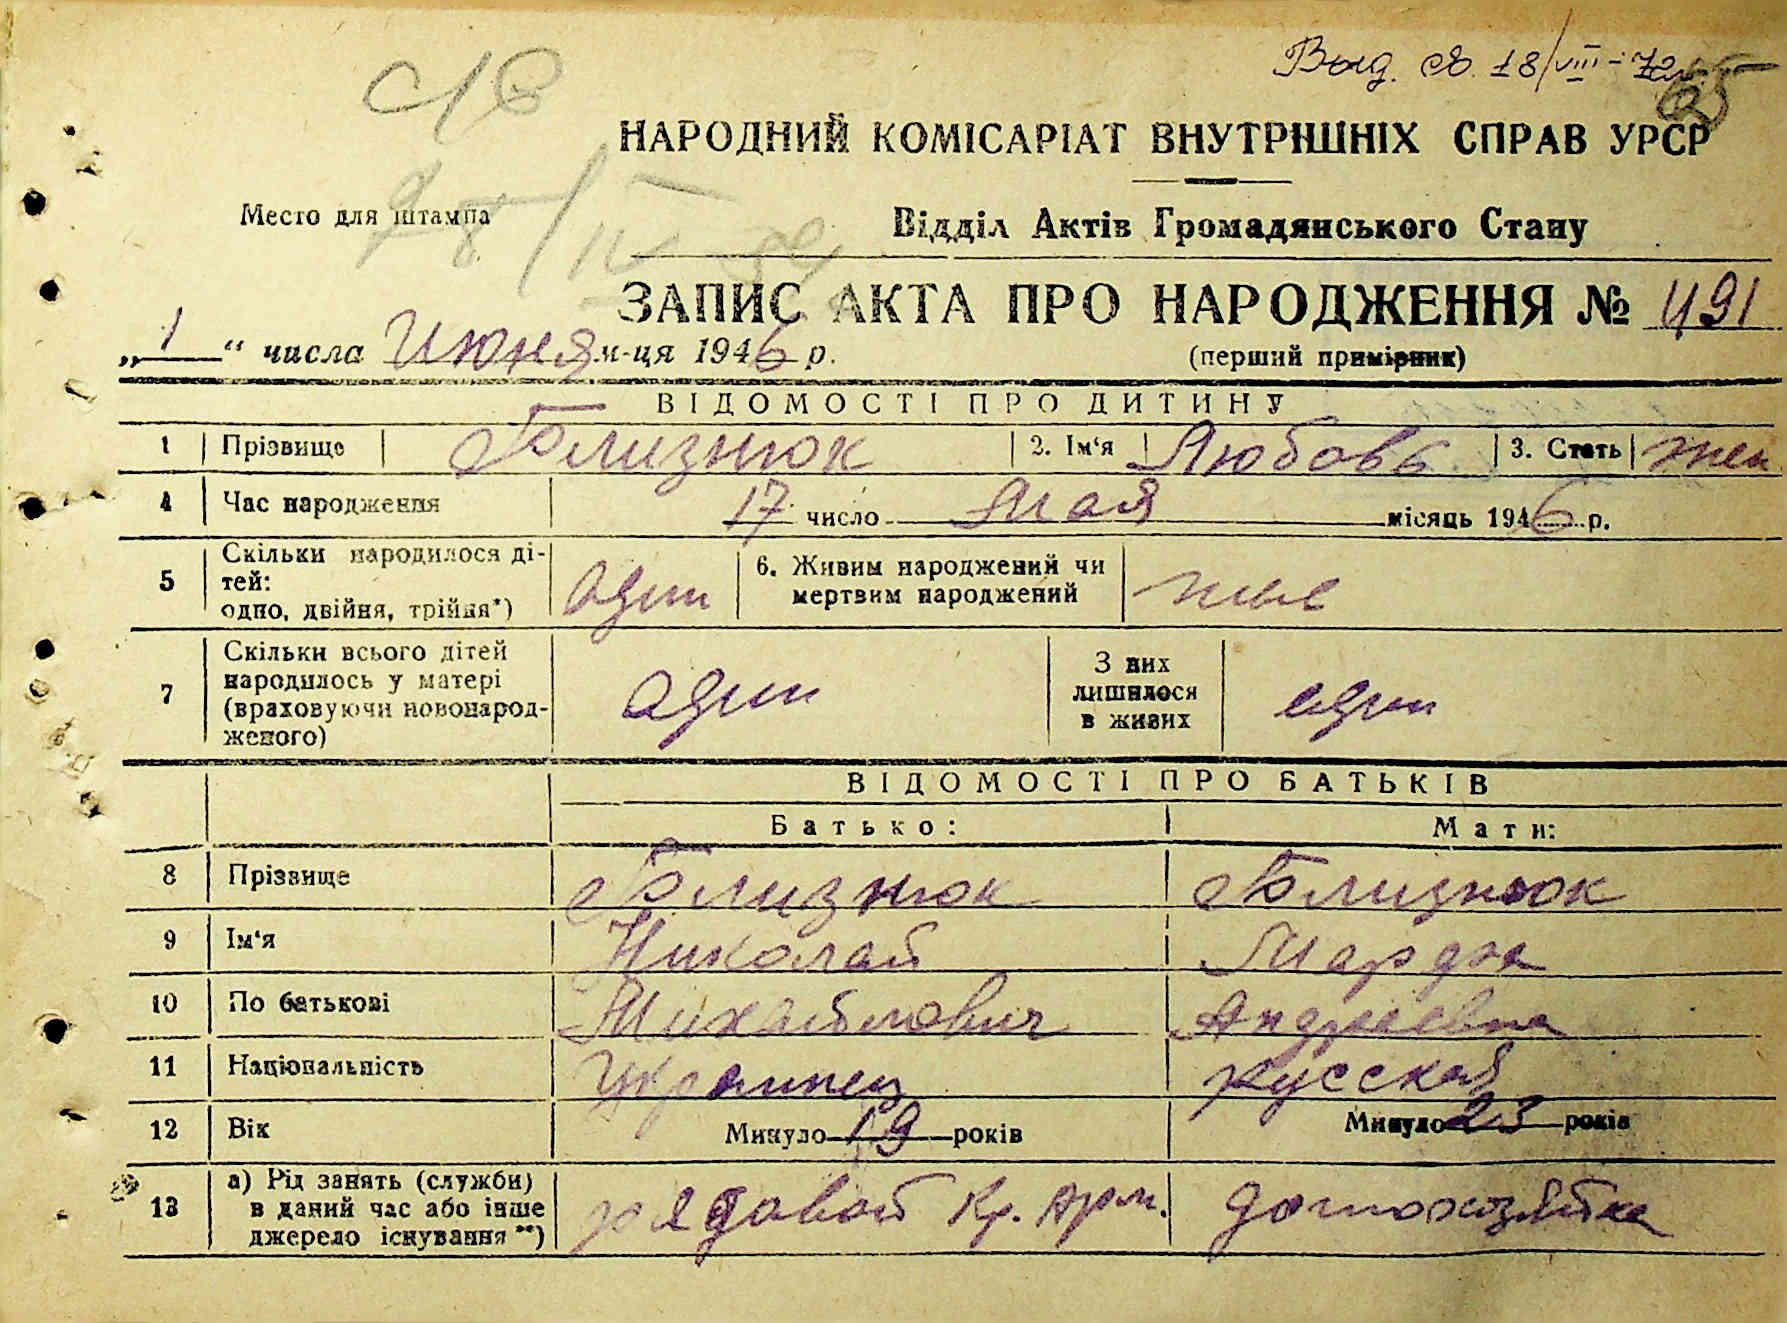 Выд. св. 18/VIII-72г.
65
НАРОДНИЙ КОМІСАРІАТ ВНУТРІШНІХ СПРАВ УРСР
Место для штампа
Відділ Актів Громадянського Стану
ЗАПИС АКТА ПРО НАРОДЖЕННЯ № 491
„ 1 “ числа Июня м-ця 1946 р.
(перший примірник)
ВІДОМОСТІ ПРО ДИТИНУ
1 Прізвище Близнюк 2. Ім‘я Любовь 3. Стать жен
4 Час народження 17 число Мая місяць 1946 р.
5 Скільки народилося ді-
тей:
одно, двійня, трійня*) один
6. Живим народжений чи
мертвим народжений
7 Скільки всього дітей
народилось у матері
(враховуючи новонарод-
женого) один
З них
лишилося
в живих один
ВІДОМОСТІ ПРО БАТЬКІВ
Батько: Мати:
8 Прізвище Близнюк Близнюк
9 Ім‘я Николай
10 По батькові Михайлович Андреевна
11 Національність Украинец русская
12 Вік Минуло 19 років Минуло 23 років
13 а) Рід занять (служби)
в даний час або інше
джерело існування **) рядовой Кр. Арм. домохозяйка